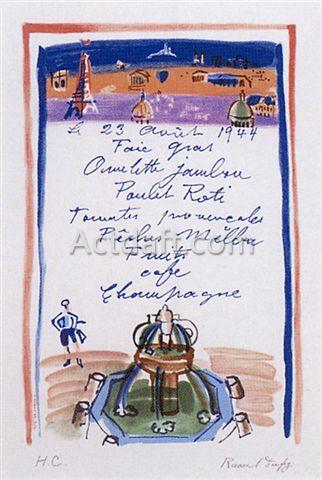 Le 23 Août 1944
Foie gras
Omelette jambon
Poulet Roti
Tomates provencales
Pêches Melba
Fruits
café
Champagne
Actdaft.com
H.C.
Raoul Dufy